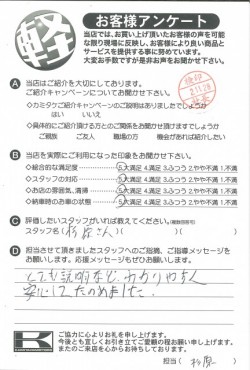 軽
お客様アンケート
当店では、お買い上げ頂いたお客様の声を可能
な限り現場に反映し、お客様により良い商品と
サービスを提供する事に努めています。
大変お手数ですが是非お声をお聞かせ下さい。
A 当店はご紹介を大切にしております。
ご紹介キャンペーンについてお聞かせ下さい。
◇カミタクご紹介キャンペーンのご説明はありましたでしょうか
はい いいえ
◇具体的にご紹介頂ける方とのご関係をお聞かせ頂けますでしょうか
ご親族 ご友人 職場の方 機会があれば紹介したい
B 当店を実際にご利用になった印象をお聞かせ下さい。
◇総合的な満足度 5.大満足 4.満足 3.ふつう 2.やや不満 1.不満
◇スタッフの対応 5.大満足 4.満足 3.ふつう 2.やや不満 1.不満
◇お店の雰囲気、清掃 5.大満足 4.満足 3.ふつう 2.やや不満 1.不満
◇納車時のお車の状態 5.大満足 4.満足 3.ふつう 2.やや不満 1.不満
C 評価したいスタッフがいれば教えてください。(複数回答可)
スタッフ名( 杉原さん )( )
D 担当させて頂きましたスタッフへのご感想、ご指導メッセージを
お願いします。応援メッセージもお待ちしております。
とても説明など、わかりやすく
安心してたのめました。
K
ご協力に心よりお礼を申し上げます。
今後とも宜しくお引き立てご愛顧の程お願い申し上げます。
またのご来店を心からお待ちしております。
担当( 杉原 )